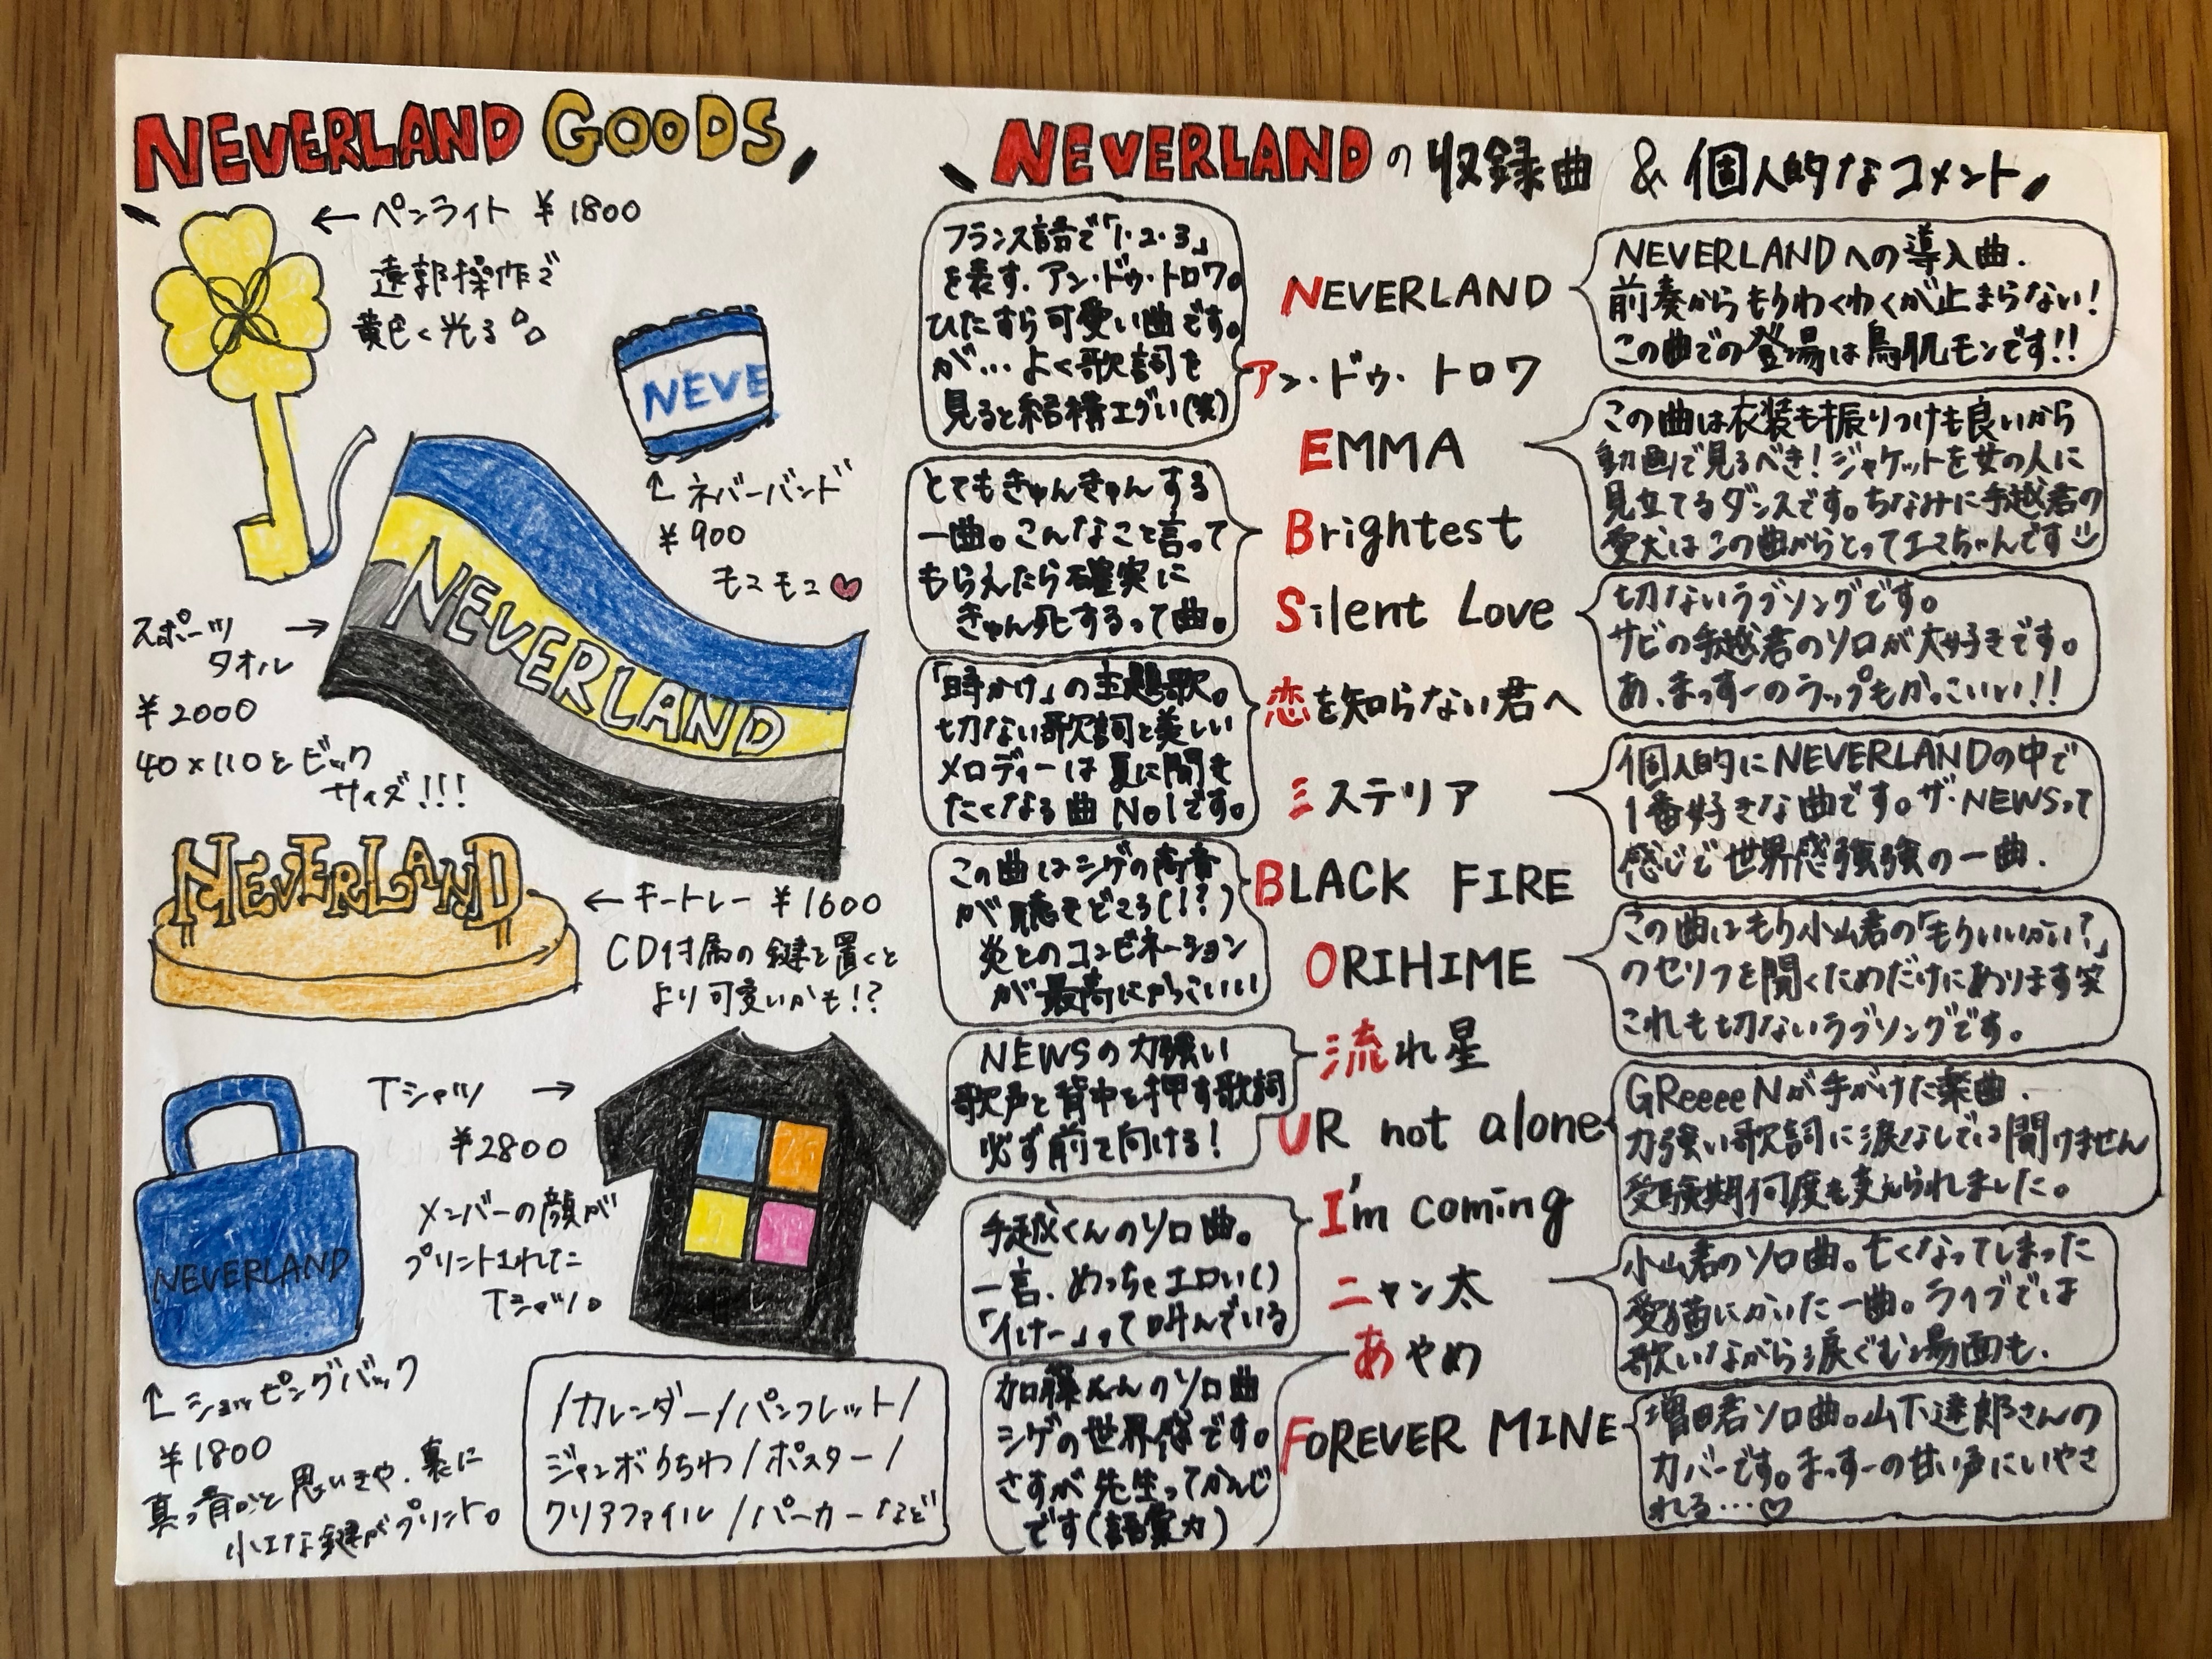 NEVERLAND GOODS
← ペンライト ¥1800
遠郭操作で
黄色く光る
NEVE
↑ ネバーバンド
¥900
モコモコ
スポーツ →
タオル
¥2000
40×110とビック
サイズ!!!
NEVERLAND
NEVERLAND
← キートレー ¥1600
CD付属の鍵を置くと
より可愛いかも!?
Tシャツ →
¥2800
メンバーの顔が
プリントされた
Tシャツ。
NEVERLAND
↑ ショッピングバック
¥1800
真っ青かと思いきや、裏に
小さな鍵がプリント。
/カレンダー/パンフレット/
ジャンボうちわ/ポスター/
クリアファイル/パーカーなど
NEVERLANDの収録曲 & 個人的なコメント
NEVERLAND
NEVERLANDへの導入曲.
前奏からもうわくわくが止まらない!
この曲での登場は鳥肌モンです!!
フランス語で「1・2・3」
を表す.アン・ドゥ・トロワ。
ひたすら可愛い曲です。
が...よく歌詞を
見ると結構エグい(笑)
アン・ドゥ・トロワ
EMMA
この曲は衣装も振りつけも良いから
動画で見るべき!ジャケットを女の人に
見立てるダンスです。ちなみに手越君の
愛犬はこの曲からとってエマちゃんです
とてもきゅんきゅんする
一曲。こんなこと言って
もらえたら確実に
きゅん死するって曲。
Brightest
Silent Love
切ないラブソングです。
サビの手越君のソロが大好きです。
あ、まっすーのラップもかっこいい!!
「時かけ」の主題歌。
切ない歌詞と美しい
メロディーは夏に聞き
たくなる曲No1です。
恋を知らない君へ
ミステリア
個人的にNEVERLANDの中で
1番好きな曲です。ザ・NEWSって
感じで世界感強強の一曲.
この曲はシゲの高音
が聴きどころ(!?)
炎とのコンビネーション
が最高にかっこいい
BLACK FIRE
ORIHIME
この曲はもう小山君の「もういいかい?」
のセリフを聞くためだけにあります笑
これも切ないラブソングです。
NEWSの力強い
歌声と背中を押す歌詞
必ず前を向ける!
流れ星
UR not alone
GReeeeNが手がけた楽曲.
力強い歌詞に涙なしでは聞けません
受験期何度も支えられました。
手越くんのソロ曲。
一言、めっちゃエロい()
「イけー」って叫んでいる
I'm coming
ニャン太
小山君のソロ曲。亡くなってしまった
愛猫にかいた一曲。ライブでは
歌いながら涙ぐむ場面も.
加藤くんのソロ曲
シゲの世界感です。
さすが先生ってかんじ
です(語彙力)
あやめ
FOREVER MINE
増田君ソロ曲。山下達郎さんの
カバーです。まっすーの甘い声にいやさ
れる...♡